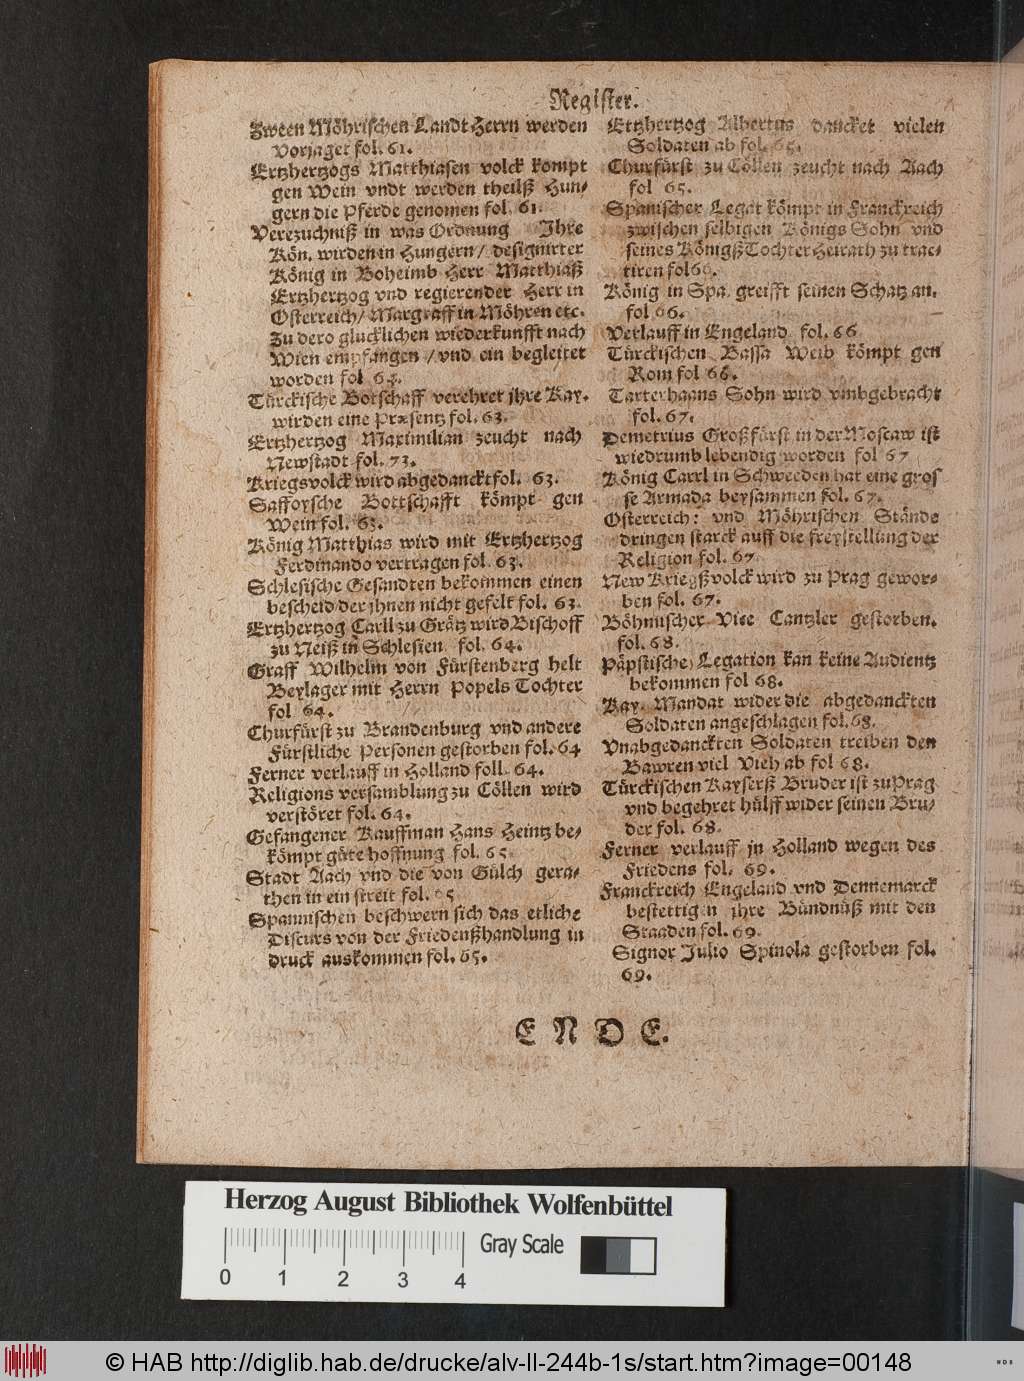 Register.
Zween Möhrischen Landt Herrn werden
vorjaget fol. 61.
Ertzhertzogs Matthiasen volck kompt
gen Wein vndt werden theilß Hun-
gern die Pferde genomen fol. 61.
Verezuchniß in was Ordnung Ihre
Kön. wirden in Hungern/ designirter
König in Boheimb Herr Matthiaß
Ertzhertzog vnd regierender Herr in
Osterreich/ Margraff in Möhren etc.
zu dero glucklichen wiederkunfft nach
Wien empfangen /vnd ein begleitet
worden fol 63.
Türckische Botschaff verehret jhre Kay.
wirden eine Præsentz fol. 63.
Ertzhertzog Maximilian zeucht nach
Newstadt fol. 73.
Kriegsvolck wird abgedanckt fol. 63.
Saffoysche Bottschafft kömpt gen
Wein fol. 63.
König Matthias wird mit Ertzhertzog
Ferdinando vertragen fol. 63.
Schlesische Gesandten bekommen einen
bescheid/der jhnen nicht gefelt fol. 63.
Ertzhertzog Carll zu Grätz wird Bischoff
zu Neiß in Schlesien fol. 64.
Graff Wilhelm von Fürstenberg helt
Beylager mit Herrn Popels Tochter
fol 64.
Churfürst zu Brandenburg vnd andere
Fürstliche Personen gestorben fol. 64
Ferner verlauff in Holland foll. 64.
Religions versamblung zu Cöllen wird
verstöret fol. 64.
Gefangener Kauffman Hans Heintz be-
kömpt gute hoffnung fol. 65.
Stadt Aach vnd die von Gülch gera-
then in ein streit fol. 65
Spannischen beschwern sich das etliche
Discurs von der Friedenßhandlung in
druck auskommen fol. 65.
Ertzhertzog Albertus dancket vielen
Soldaten ab fol. 65.
Churfürst zu Cöllen zeucht nach Aach
fol 65.
Spanischer Legat kömpt in Franckreich
zwischen selbigen Königs Sohn vnd
seines Königß Tochter Heirath zu trac-
tiren fol 66.
König in Spa. greifft seinen Schatz an.
fol 66.
Verlauff in Engeland fol. 66
Türckischen Bassa Weib kömpt gen
Rom fol 66.
Tarterhaans Sohn wird vmbgebracht
fol. 67.
Demetrius Großfürst in der Moscaw ist
wiedrumb lebendig worden fol 67
König Carrl in Schweeden hat eine gros
se Armada beysammen fol. 67.
Osterreich: vnd Möhrischen Stände
dringen starck auff die freystellung der
Religion fol. 67.
New Kriegßvolck wird zu Prag gewor-
ben fol. 67.
Böhmischer Vice Cantzler gestorben.
fol. 68.
Päpstische Legation kan keine Audientz
bekommen fol 68.
Kay. Mandat wider die abgedanckten
Soldaten angeschlagen fol. 68.
Vnabgedanckten Soldaten treiben den
Bawren viel Vieh ab fol 68.
Türckischen Kayserß Bruder ist zu Prag
vnd begehret hülff wider seinen Bru-
der fol. 68.
Ferner verlauff jn Holland wegen des
Friedens fol. 69.
Franckreich Engeland vnd Dennemarck
bestettigen jhre Bündnüß mit den
Staaden fol. 69.
Signor Julio Spinola gestorben fol.
69.
E N D E.
Herzog August Bibliothek Wolfenbüttel
Gray Scale
0 1 2 3 4
© HAB http://diglib.hab.de/drucke/alv-ll-244b-1s/start.htm?image=00148